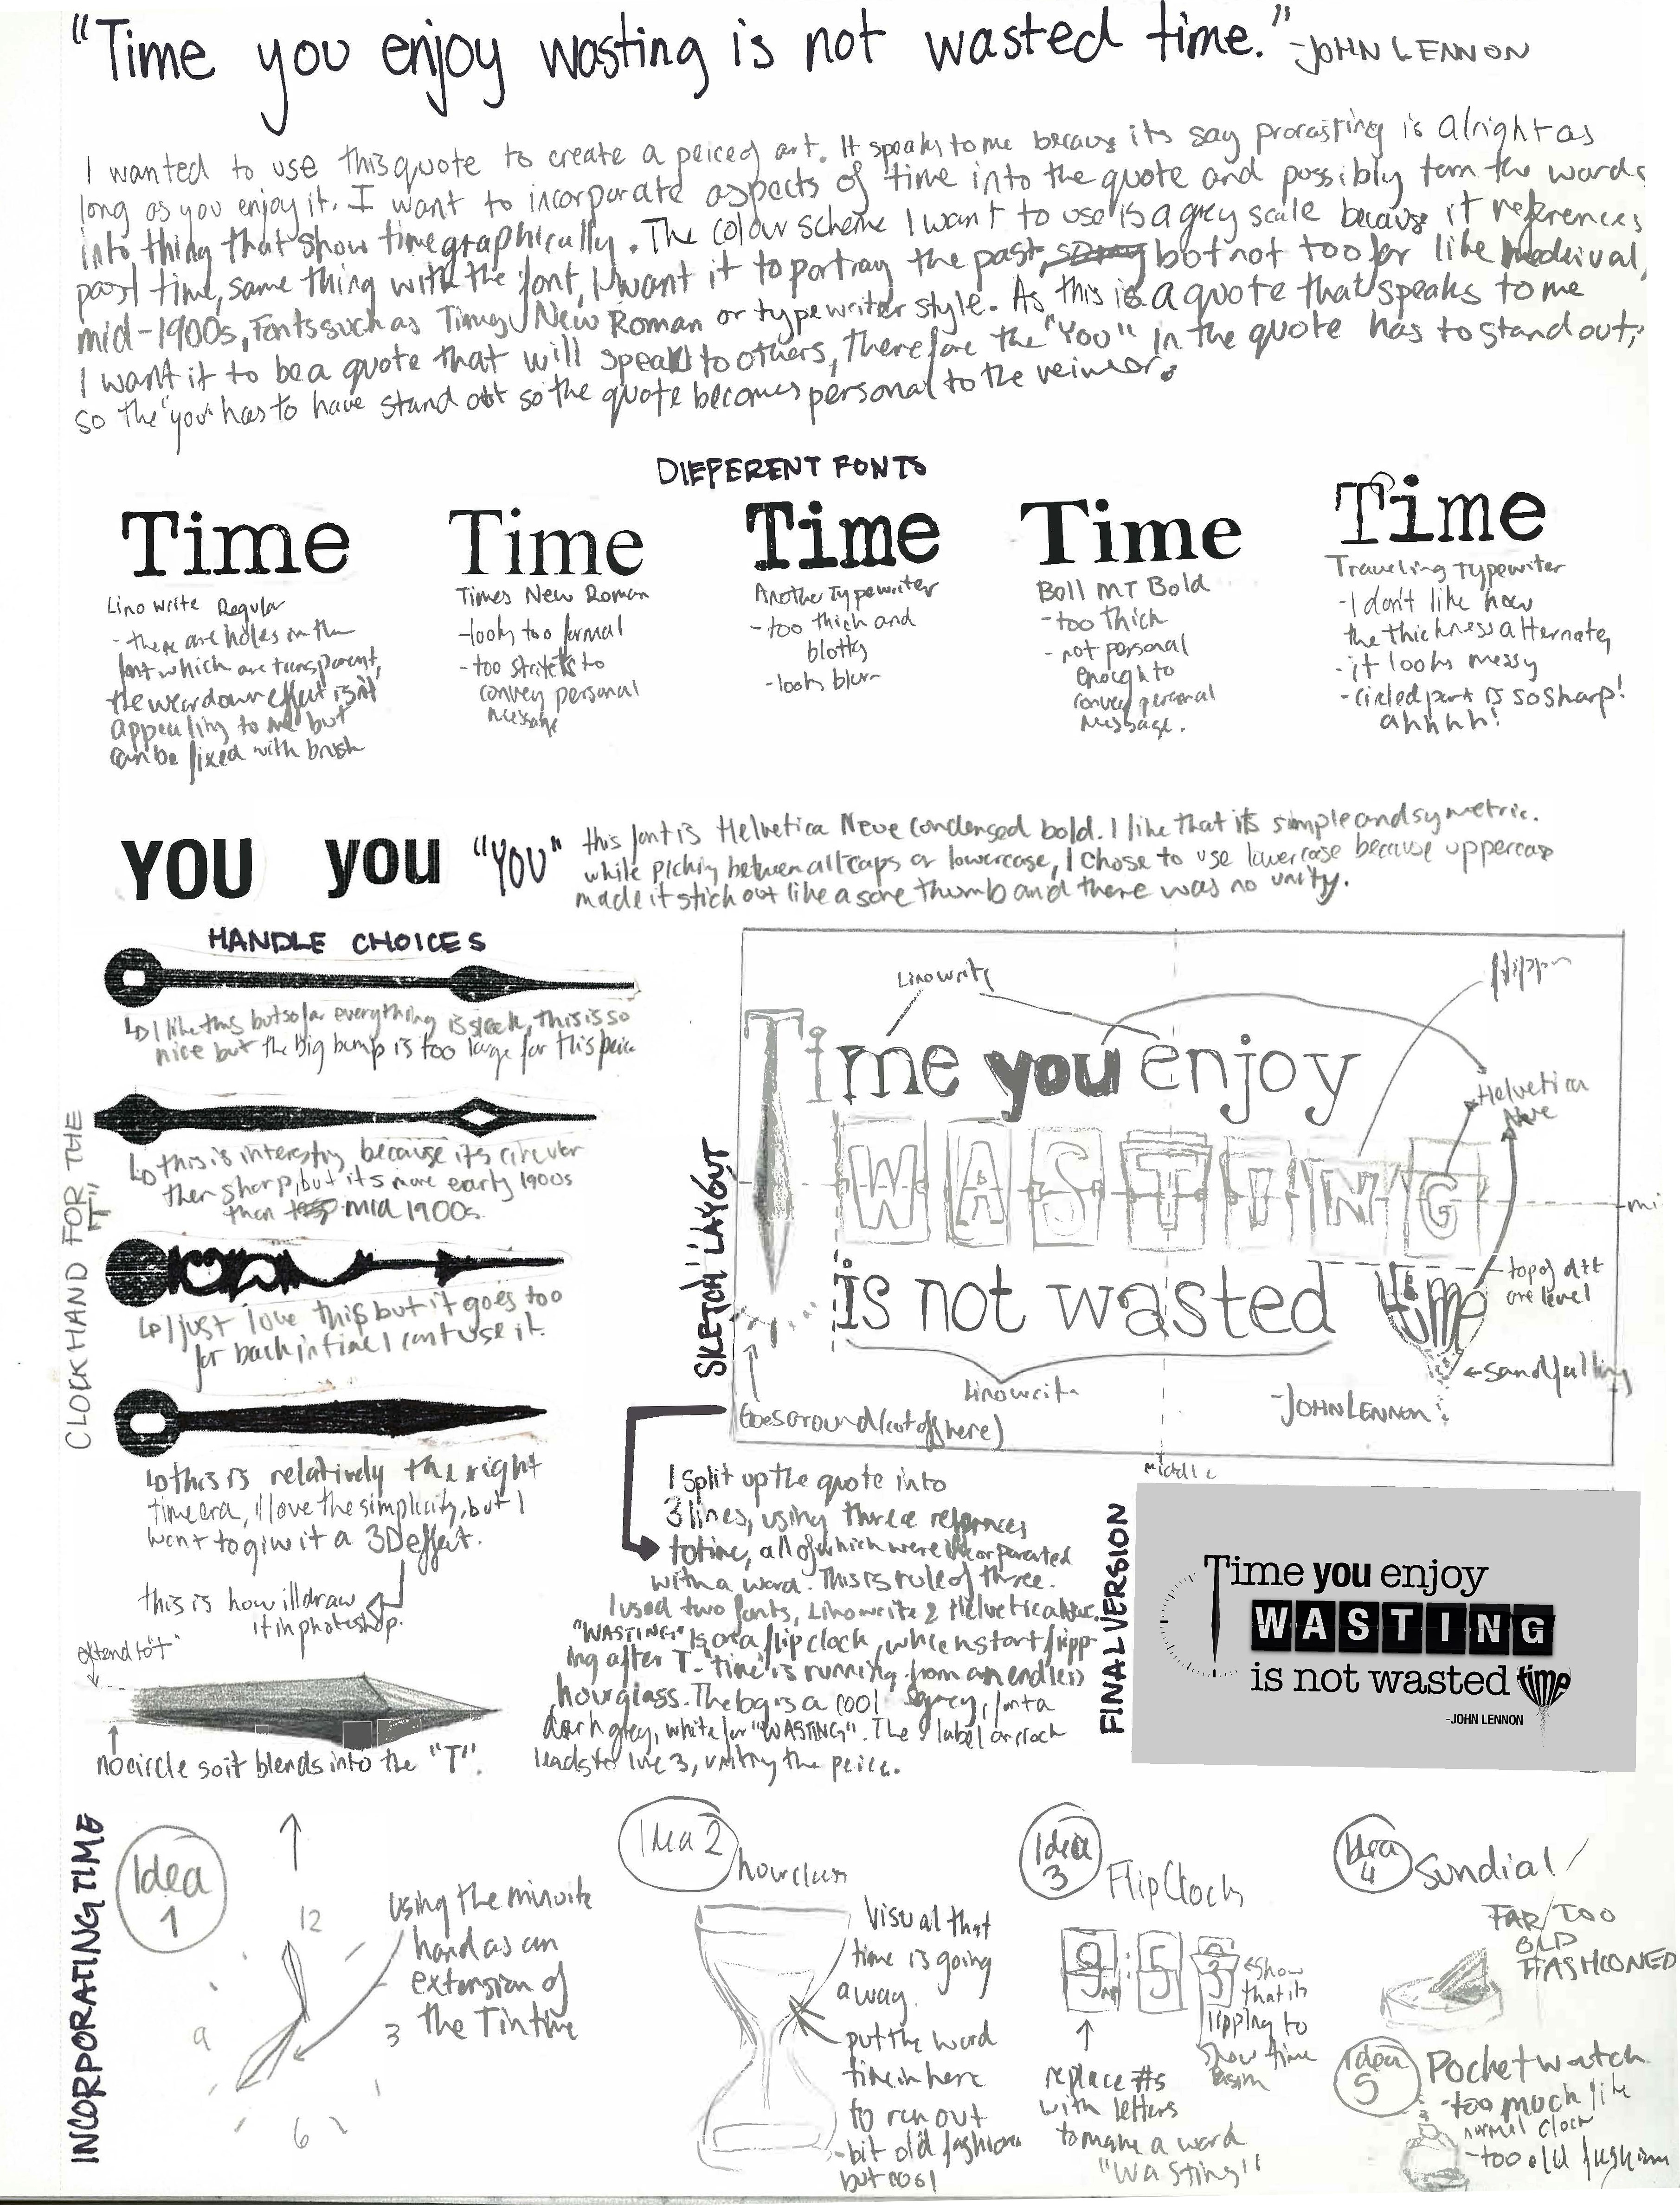 "Time you enjoy wasting is not wasted time." -JOHN LENNON
I wanted to use this quote to create a peiceof art. It speaks to me becaus its say procasting is alright as
long as you enjoy it. I want to incorporate aspects of time into the quote and possibly turn the words
into thing that show time graphically. The colour scheme I want to use is a grey scale becaus it references
past time, same thing with the font, I want it to portray the past, but not too far like medeival,
mid-1900s, Fonts such as Times New Roman or typewriter style. As this is a quote that speaks to me
I want it to be a quote that will speak to others, therefore the "You" in the quote has to stand out,
so the "you" has to have stand out so the quote becomes personal to the veiwer.
DIFFERENT FONTS
Time
Lino write Regular
- there are holes in the
font which are transparent,
the weardown effect isn't
appealing to me but
can be fixed with brush
Time
Times New Roman
-looks too formal
- too strict to
convey personal
message
Time
Another Typewriter
- too thick and
blotty
- looks blur
Time
Bell MT Bold
- too thick
- not personal
enough to
convey personal
message.
Time
Traveling Typewriter
- I don't like how
the thickness alternates
- it looks messy
- circled part is so sharp!
ahhhh!
YOU you "YOU"
this font is Helvetica Neue Condensed bold. I like that its simple and symetric.
while picking between all caps or lowercase, I chose to use lowercase because uppercase
made it stick out like a sore thumb and there was no unity.
HANDLE CHOICES
CLOCK HAND FOR THE "T"
I like this but so far everything is sleek, this is so
nice but the big bump is too large for this peice
this is interesting because its circular
then sharp, but its more early 1900s
than mid 1900s.
I just love this but it goes too
far back in time I cant use it.
this is relatively the right
time era, I love the simplicity, but I
want to give it a 3D effect.
this is how ill draw
it in photoshop.
extend to "t"
no circle so it blends into the "T".
SKETCH LAYOUT
Linowrite
flippn
Time you enjoy
Helvetica
Neue
WASTING
is not wasted time
top of dtt
are level
sand falling
Linowrite
-JOHN LENNON
Goes around (cut off here)
middle
I split up the quote into
3 lines, using three refernces
to time, all of which were incorporated
with a word. This is rule of three.
I used two fonts, Linowrite & Helvetica Neue.
"WASTING" is on a flip clock, which start flipp-
ing after T. "time" is running from an endless
hourglass. The bg is a cool grey, font a
dark grey, white for "WASTING". The 9 label on clock
leads to line 3, uniting the peice.
FINAL VERSION
Time you enjoy
WASTING
is not wasted time
-JOHN LENNON
INCORPORATING TIME
Idea
1
12
3
6
9
using the minute
hand as an
extension of
the T in time
Idea 2
hourclass
Visual that
time is going
away.
put the word
time in here
to run out
- bit old fashion
but cool
Idea
3
Flip Clock
9:53
show
that its
flipping to
show time
replace #s
with letters
to make a word
"Wasting"
Idea
4
Sundial
FAR TOO
OLD
FASHIONED
Idea
5
Pocket watch
-too much like
normal clock
-too old fashion